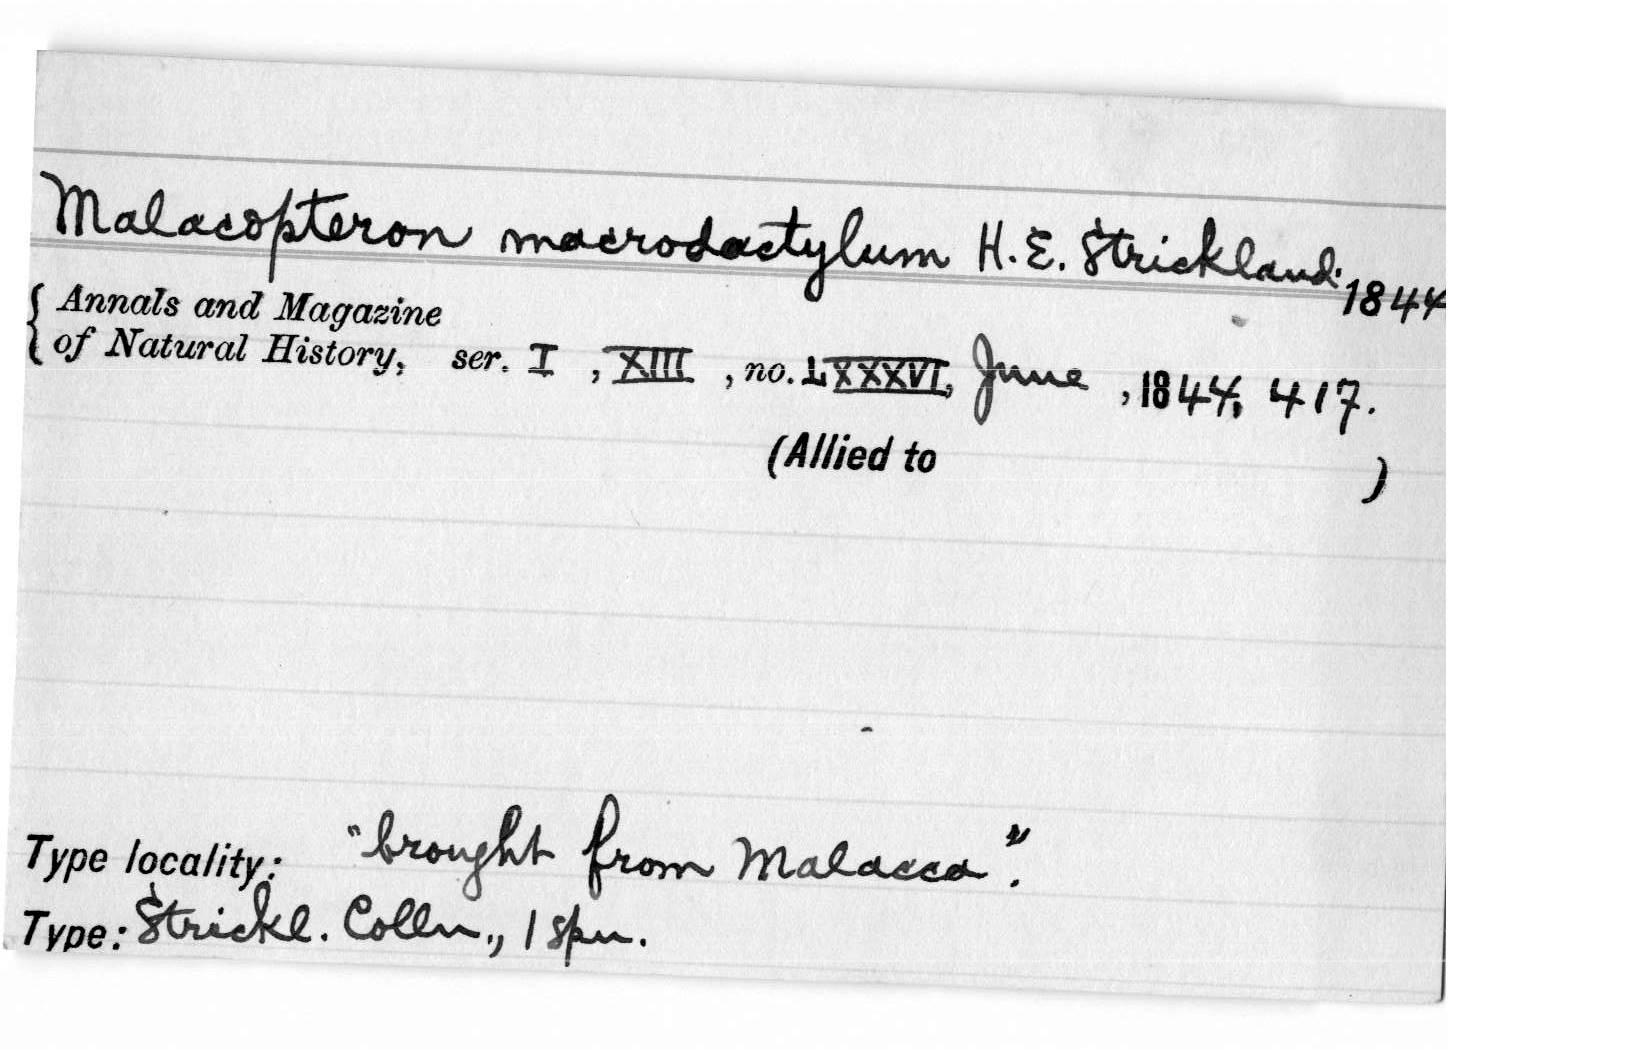 Malacopteron macrodactylum H.E. Strickland. 1844
Annals and Magazine
of Natural History, ser. I, XIII, no. LXXXVI, June, 1844, 417.
(Allied to )
Type locality: "brought from Malacca".
Type: Strickl. Colln., 1 spn.